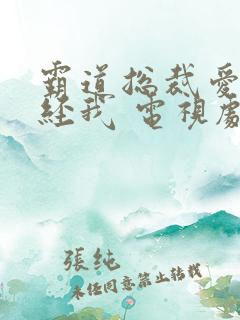 霸道总裁爱
经我 電視處
張純
未经同意禁止转载